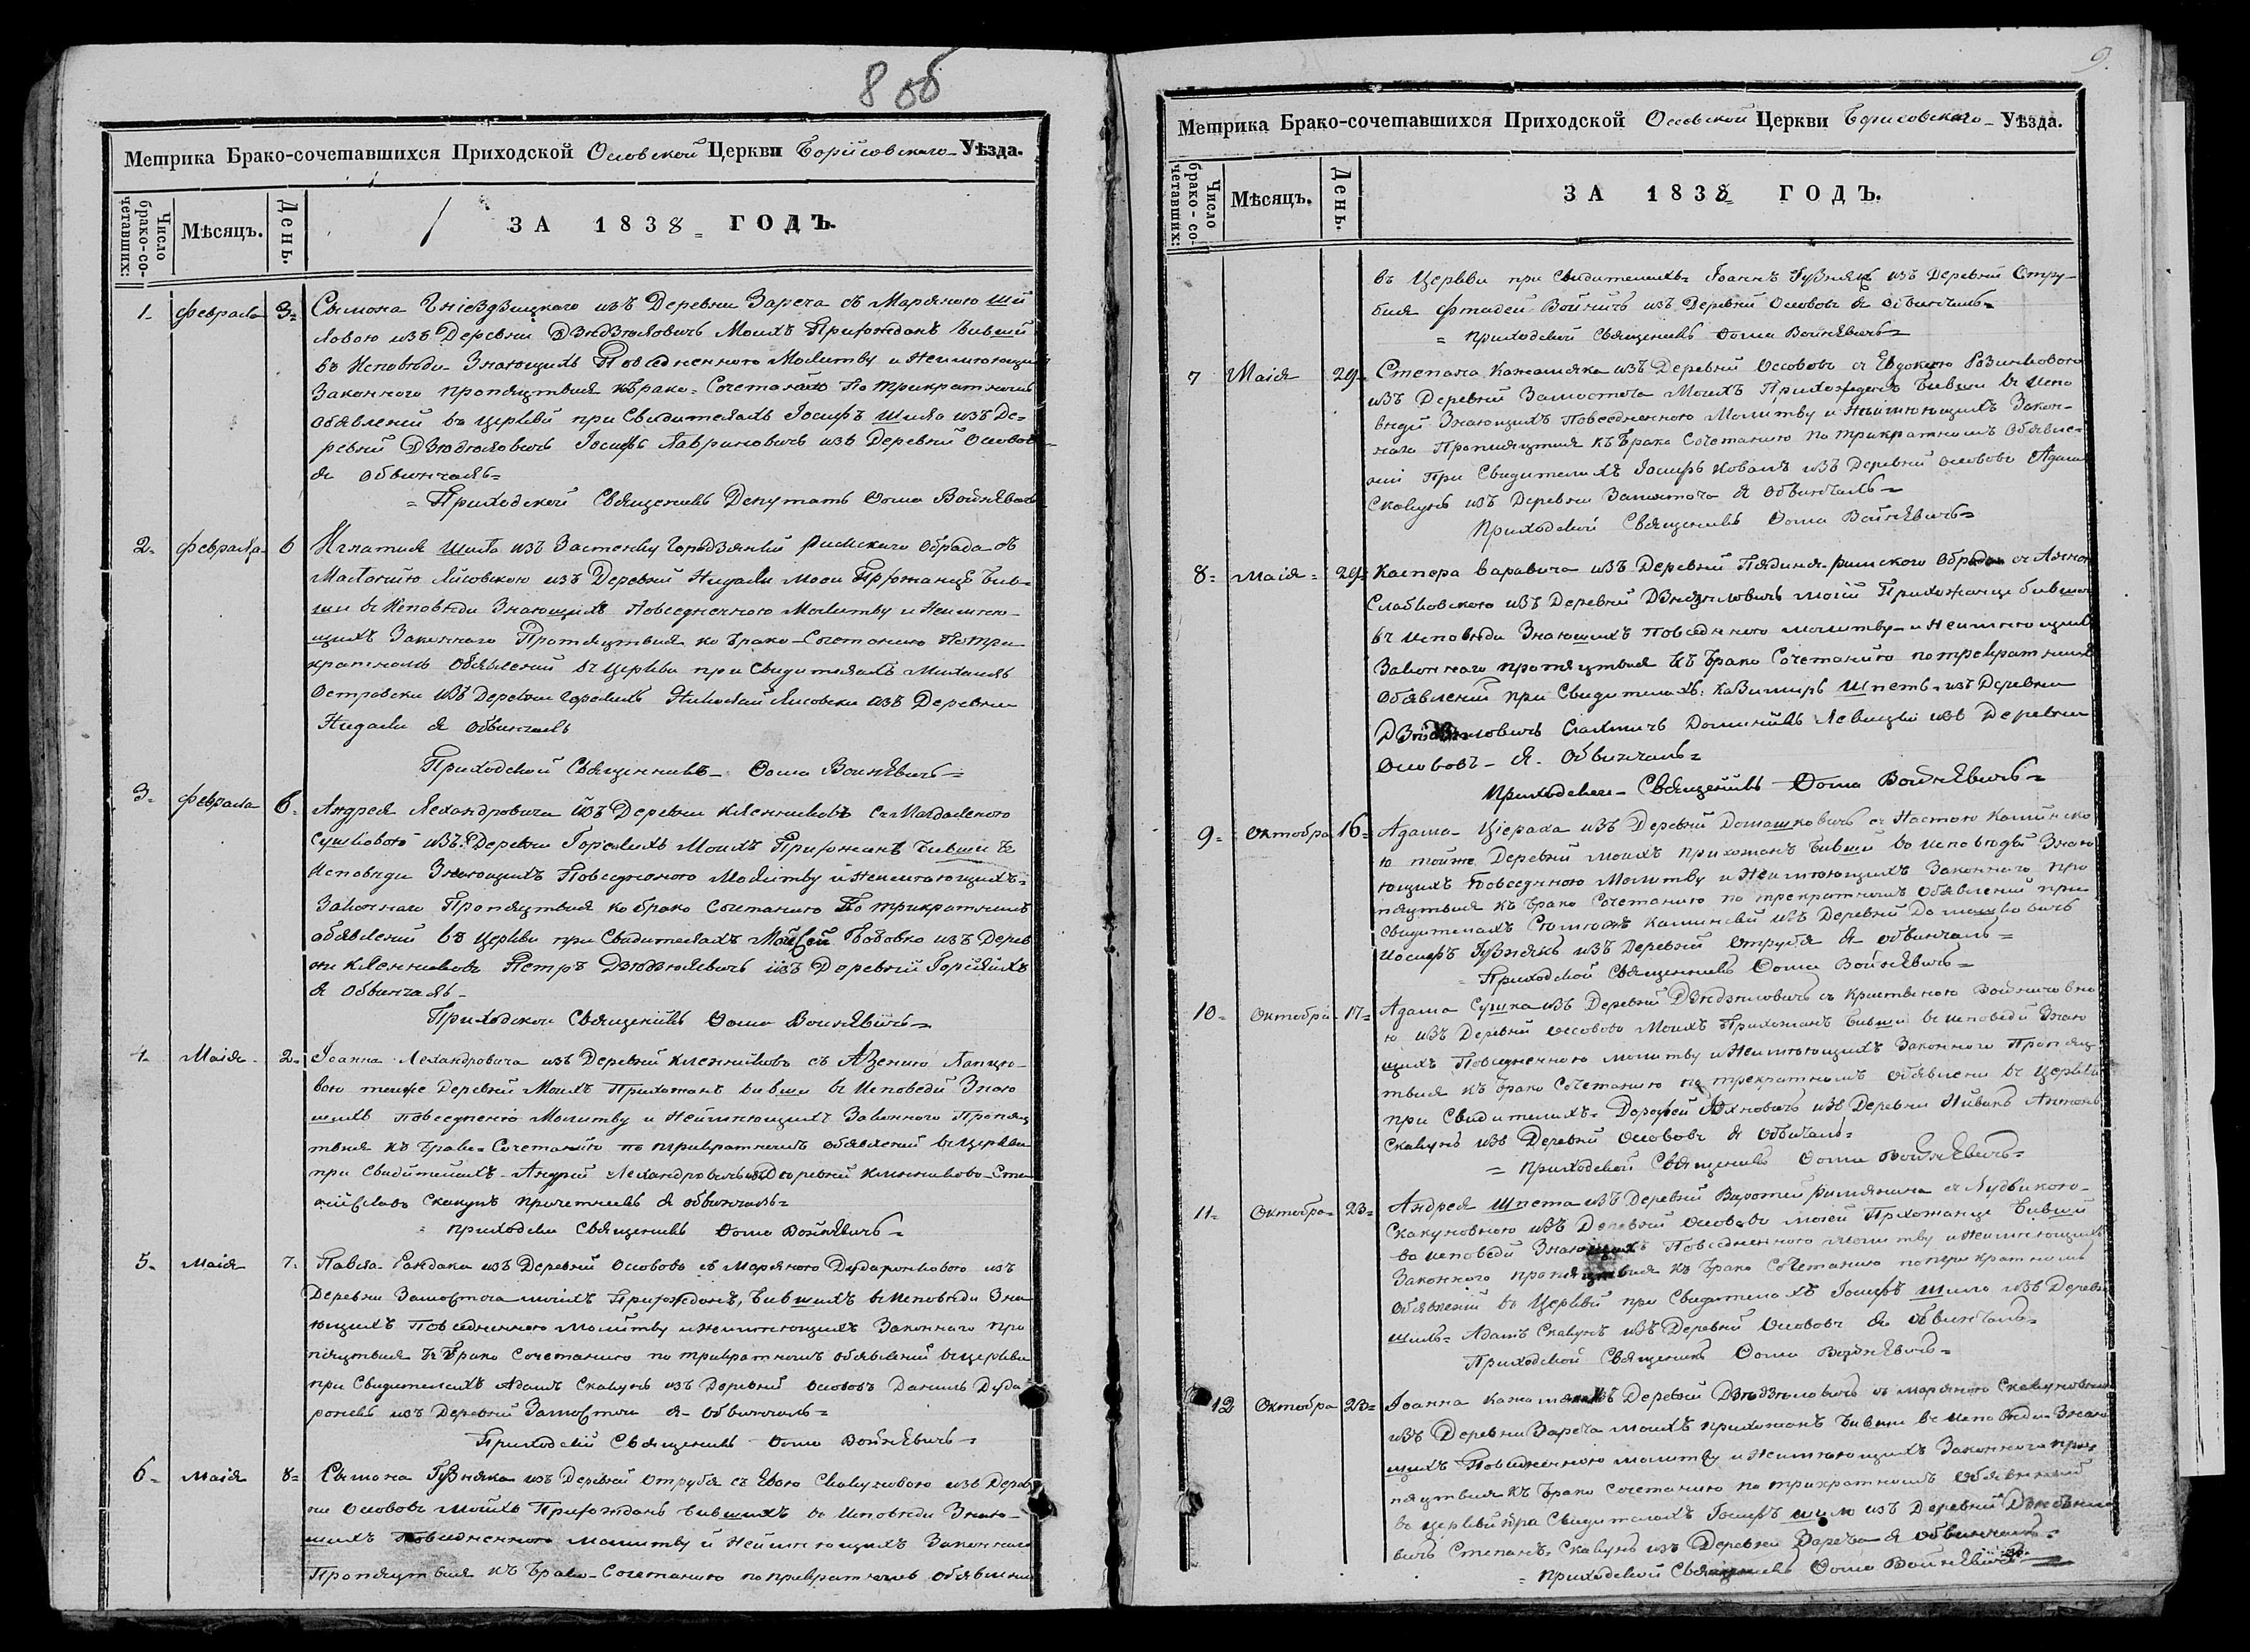 8 об
Метрика Брако-сочетавшихся Приходской Осовской Церкви Борисовскаго Уѣзда.
Число брако-сочетавших:
Мѣсяцъ.
День.
ЗА 1838 ГОДЪ.
1 февраля 3 Сымона Гніездзицкаго изъ Деревни Зареча съ Маряною Ши
ловою изъ Деревни Дзюдзюловичь Моихъ Прихожанъ бывши
въ Исповѣди Знающихъ Повседневную Молитву и Неимѣющихъ
Законнаго препяцтвія къ Брако-Сочетанію По трикратномъ
Обявленіи въ церкви при Свидителяхъ Іосифъ Шила изъ Де-
ревни Дзюдзюловичь Іосифъ Лавриновичь изъ Деревни Осовов
я обвинчалъ
Приходской Священникъ Депутатъ Фома Войнѣвичъ
2 февраля 6 Игнатія Шила изъ Застенку Римскаго Обрада съ
Лисовскою изъ Деревни Нидали моеи Прихожанце быв-
ши въ Исповѣди Знающихъ Повседневною Молитву и Неимѣю-
щихъ Законнаго Протяцтвія ко Брако-Сочетанию По три
кратномъ Обявлений въ Церкви при Свидителяхъ Михаилъ
Островски изъ Деревни Горелихъ Николай Лисовски изъ Деревни
Нидали я обвинчалъ
Приходской Священникъ Фома Войнѣвичъ
3 февраля 6 Андрея Лехандровича изъ Деревни Кленниковъ съ Магдаленою
Сушковою изъ Деревни Горелихъ Моихъ Прихожанъ бывши въ
Исповѣди Знающихъ Повседневною Молитву и Неимѣющихъ
Законнаго Препяцтвия ко брако сочетанию По трикратнымъ
обявлений въ Церкви при Свидителяхъ Мойсей Бововко изъ Дерев
ни Кленниковъ Петръ Дзюдзюлевичъ изъ Деревни Горелихъ
я обвинчалъ
Приходской Священникъ Фома Войнѣвичъ
4 Маія 2 Іоанна Лехандровича изъ Деревни Кленниковъ съ
вою теиже Деревни Моихъ Прихожанъ бывши въ Исповеди Знаю
щихъ повседневною Молитву и Неимѣющихъ Законнаго Препяц
твия къ Брако-Сочетанию по трикратнимъ обявлений въ Церкви
при Свидителяхъ Андрей Лехандровичъ изъ Деревни Кленниковъ Ста
ниславъ Скакунъ Причетникъ я обвинчалъ
приходски Священникъ Фома Войнѣвичъ
5 Маія 7 Павла изъ Деревни Осововъ съ Маряною Дударонковою изъ
Деревни Замосточа моихъ Прихожанъ, бывшихъ въ Исповѣди Зна
ющихъ Повседневною молитву и неимѣющихъ Законнаго пре
пяцтвия къ Брако сочетанию по трикратномъ обявлений въ церкви
при Свидителяхъ Адамъ Скакунъ изъ Деревни Осововъ Данилъ Дуда
ронекъ изъ Деревни Замосточ я обвинчалъ
Приходский Священникъ Фома Войнѣвичъ
6 Маія 8 Сымона Гузняка изъ Деревни Отрубя съ Евою Скакуновою изъ Дерев
ни Осововъ Моихъ Прихожанъ бывшихъ въ Исповѣди Знаю-
щихъ Повседневною молитву и Неимѣющихъ Законнаго
Препяцтвия къ Брако-Сочетанию по трикратномъ обявлении
9.
Метрика Брако-сочетавшихся Приходской Осовской Церкви Борисовскаго Уѣзда.
Число брако-сочетавших:
Мѣсяцъ.
День.
ЗА 1838 ГОДЪ.
въ Церкви при Свидителяхъ Іоаннъ Гузнякъ изъ Деревни Отру-
бия Фтадей Войничъ изъ Деревни Осововъ я обвинчалъ
приходской Священникъ Фома Войнѣвичъ
7 Маія 29 Степана Канашяка изъ Деревни Осововъ съ Евдокиею
изъ Деревни Замосточа Моихъ Прихожданъ бывши въ Испо
вѣди Знающихъ Повседневною Молитву и Неимѣющихъ Закон-
наго Препяцтвия къ Брако Сочетанию по трикратномъ Обявле-
нии При Свидителяхъ Іосифъ Ковалъ изъ Деревни Осововъ Адамъ
Скакунъ изъ Деревни Замосточа я Обвинчалъ
Приходской Священникъ Фома Войнѣвичъ
8 Маія 29 Каспера Варавича изъ Деревни Римскаго Обрада съ Анною
Слабковскою изъ Деревни Дзюдзюловичъ моей Прихожанце бывшои
въ Исповѣди Знающихъ повседневною молитву и Неимѣющихъ
Законнаго протяцтвия къ Брако Сочетанию по трекратнимъ
Обявлений при Свидителяхъ: Казимиръ Шпетъ изъ Деревни
Доминикъ Левицки изъ Деревни
Осововъ я Обвинчалъ
Приходской Священникъ Фома Войнѣвичъ
9 Октобра 16 Адама Цієраха изъ Деревни Домашковичъ съ Настою Камінско
ю тойже Деревни моихъ прихожанъ бывши во исповѣди Знаю
ющихъ Повседневною Молитву и Неимѣющихъ Законнаго Пре
пяцтвия къ Брако Сочетанию по трекратномъ обявлений при
Свидителяхъ Каминский изъ Деревни Домашковичъ
Иосифъ Гузнякъ изъ Деревни Отрубя я обвинчалъ
Приходской Священникъ Фома Войнѣвичъ
10 Октобра 17 Адама Сушка изъ Деревни Дзюдзюловичъ съ Кристиною Войничовно
ю изъ Деревни Осововъ Моихъ Прихожанъ бывши въ исповеди Знаю
щихъ Повседневною молитву и Неимѣющихъ Законнаго Препяц
твия къ Брако Сочетанию по трекратномъ обявлени въ Церкви
при Свидителяхъ Дорофей Юхновичъ изъ Деревни Нивакъ Антонъ
Скакунъ изъ Деревни Осововъ я обвинчалъ
приходской Священникъ Фома Войнѣвичъ
11 Октобра 23 Андрея Шпета изъ Деревни Воротей Римлянина съ Лудвикою
Скакуновною изъ Деревни Осововъ моей Прихожанце бывши
во исповеди Знающихъ Повседневного молитву и Неимѣющихъ
Законного препяцтвия къ Брако сочетанию по трикратномъ
обявлений въ Церкви при Свидителяхъ Іосифъ Шило изъ Деревни
Шилъ Адамъ Скакунъ изъ Деревни Осововъ я обвинчалъ
Приходской Священникъ Фома Войнѣвичъ
12 Октобра 23 Іоанна изъ Деревни Дзюдзюловичъ съ маряною Скакуновною
изъ Деревни Зареча моихъ прихожанъ бывши въ Исповѣди Знаю
щихъ Повседневною молитву и Неимѣющихъ Законнаго пре
пяцтвия къ Брако сочетанию по трикратномъ Обявлений
во церкви при Свидителяхъ Іосифъ Шило изъ Деревни Дзюдзюло
вичъ Степанъ Скакунъ изъ Деревни Зареча я обвинчалъ
приходской Священникъ Фома Войнѣвичъ